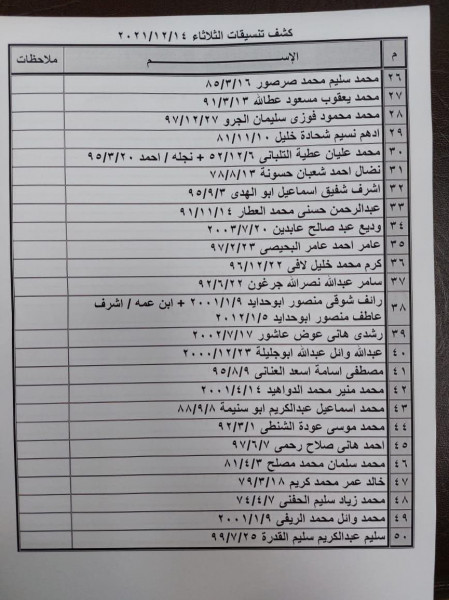 كشف تنسيقات الثلاثاء ٢٠٢١/١٢/١٤
م الإســـــــــــــــــم ملاحظات
٢٦ محمد سليم محمد صرصور ٨٥/٣/١٦
٢٧ محمد يعقوب مسعود عطاالله ٩١/٣/١٣
٢٨ محمد محمود فوزى سليمان الجرو ٩٧/١٢/٢٧
٢٩ ادهم نسيم شحادة خليل ٨١/١١/١٠
٣٠ محمد عليان عطية التلبانى ٥٢/١٢/٦ + نجله / احمد ٩٥/٣/٢٠
٣١ نضال احمد شعبان حسونة ٧٨/٨/١٣
٣٢ اشرف شفيق اسماعيل ابو الهدى ٩٥/٩/٣
٣٣ عبدالرحمن حسنى محمد العطار ٩١/١١/١٤
٣٤ وديع عبد صالح عابدين ٢٠٠٣/٧/٢٠
٣٥ عامر احمد عامر البحيصى ٩٧/٢/٢٣
٣٦ كرم محمد خليل لافى ٩٦/١٢/٢٢
٣٧ سامر عبدالله نصرالله جرغون ٩٢/٦/٢٢
٣٨ رائف شوقى منصور ابوحدايد ٢٠٠١/١/٩ + ابن عمه / اشرف
عاطف منصور ابوحدايد ٢٠١٢/١/٥
٣٩ رشدى هانى عوض عاشور ٢٠٠٢/٧/١٧
٤٠ عبدالله وائل عبدالله ابوجليلة ٢٠٠٠/١٢/٢٣
٤١ مصطفى اسامة اسعد العنانى ٩٥/٨/٩
٤٢ محمد منير محمد الدواهيد ٢٠٠١/٤/١٤
٤٣ محمد اسماعيل عبدالكريم ابو سنيمة ٨٨/٩/٨
٤٤ محمد موسى عودة الشنطى ٩٢/٣/١
٤٥ احمد هانى صلاح رحمى ٩٧/٦/٧
٤٦ محمد سلمان محمد مصلح ٨١/٤/٣
٤٧ خالد عمر محمد كريم ٧٩/٣/١٨
٤٨ محمد زياد سليم الحفنى ٧٤/٤/٧
٤٩ محمد وائل محمد الريفى ٢٠٠١/١/٩
٥٠ سليم عبدالكريم سليم القدرة ٩٩/٧/٢٥